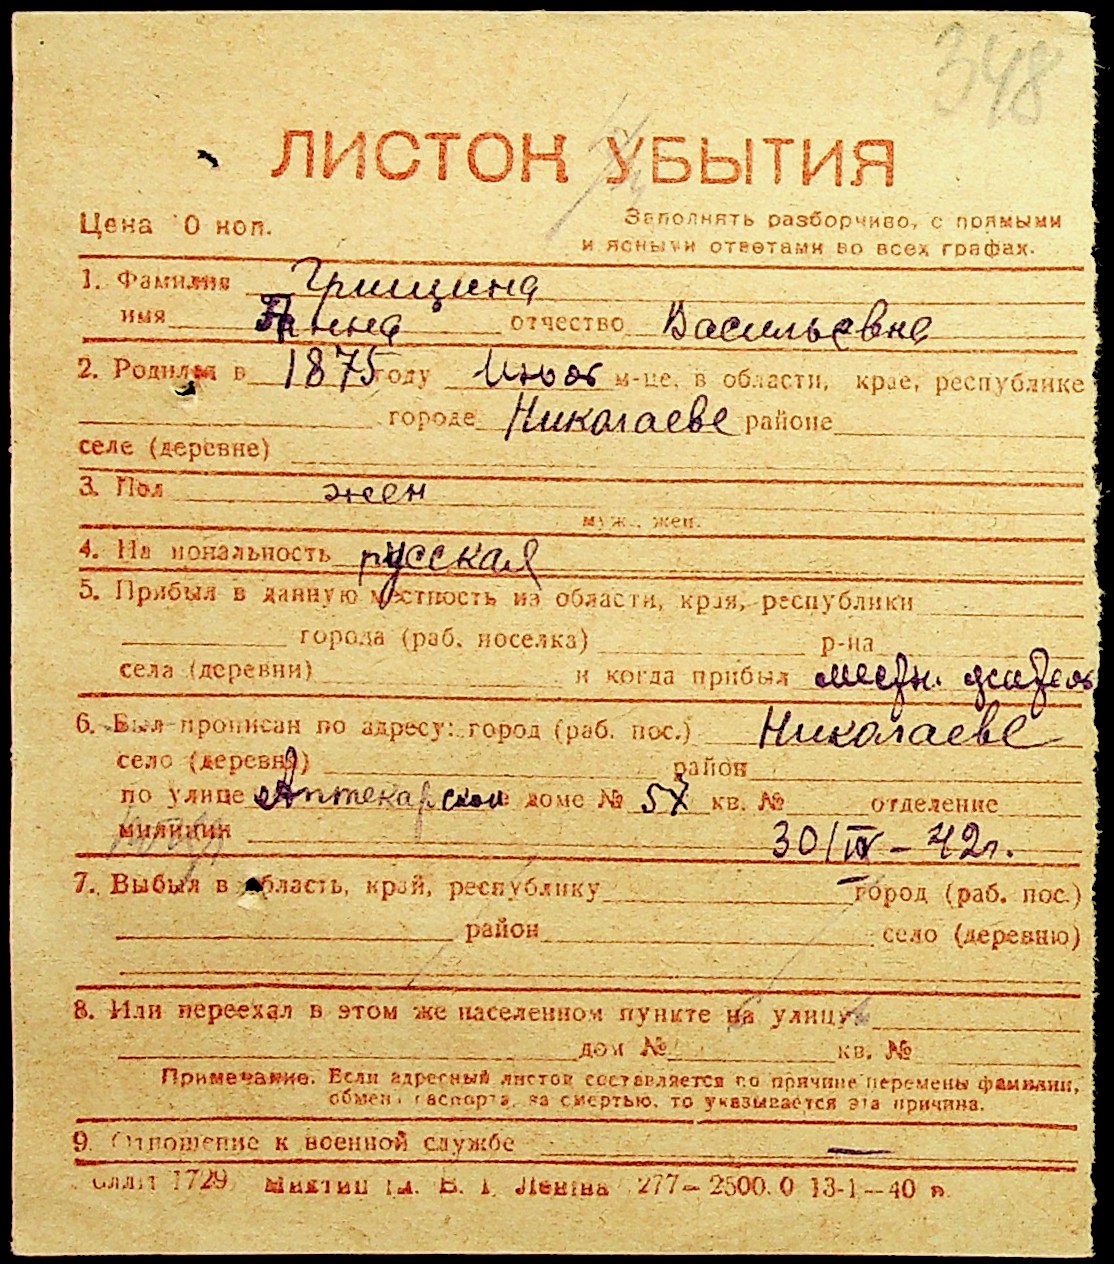 348
ЛИСТОК УБЫТИЯ
Цена 10 коп.
Заполнять разборчиво, с прямыми
и ясными ответами во всех графах.
1. Фамилия Грищина
имя Анна отчество Васильевна
2. Родился в 1875 году Июль м-це, в области, крае, республике
городе Николаеве районе
селе (деревне)
3. Пол жен
муж., жен.
4. Национальность русская
5. Прибыл в данную местность из области, края, республики
города (раб. поселка) р-на
села (деревни) и когда прибыл местн. житель
6. Был прописан по адресу: город (раб. пос.) Николаеве
село (деревня) район
по улице Аптекарской доме № 57 кв. № отделение
милиции 30/IV – 42г.
7. Выбыл в область, край, республику город (раб. пос.)
район село (деревню)
8. Или переехал в этом же населенном пункте на улицу
дом № кв. №
Примечание. Если адресный листок составляется по причине перемены фамилии,
обмена паспорта, за смертью, то указывается эта причина.
9. Отношение к военной службе —
1729 Ленина 277–2500.0 13-1–40 г.